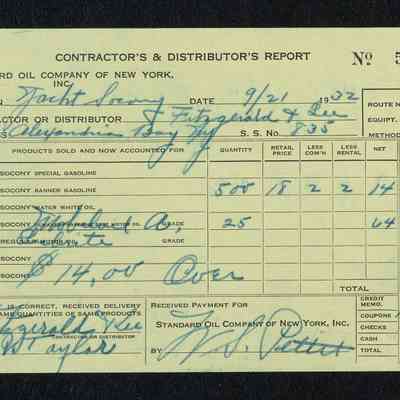 CONTRACTOR'S & DISTRIBUTOR'S REPORT Nº 5
RD OIL COMPANY OF NEW YORK,
INC.
N Yacht Socony DATE 9/21 1932
ACTOR OR DISTRIBUTOR Fitzgerald & Lee
Alexandria Bay NY S. S. No. 835
ROUTE N
EQUIP.
METHOD
PRODUCTS SOLD AND NOW ACCOUNTED FOR QUANTITY RETAIL PRICE LESS COM'N LESS RENTAL NET
SOCONY SPECIAL GASOLINE
SOCONY BANNER GASOLINE 500 18 2 2 14
SOCONY WATER WHITE OIL
MOTOR OIL GRADE A, 25 64
REGULAR GRADE
SOCONY
SOCONY $14.00 Over
SOCONY TOTAL
IS CORRECT, RECEIVED DELIVERY
AME QUANTITIES OF SAME PRODUCTS
tzgerald & Lee
W Taylor
RECEIVED PAYMENT FOR
STANDARD OIL COMPANY OF NEW YORK, INC.
BY W. S. Pettit
CREDIT MEMO.
COUPONS
CHECKS
CASH
TOTAL